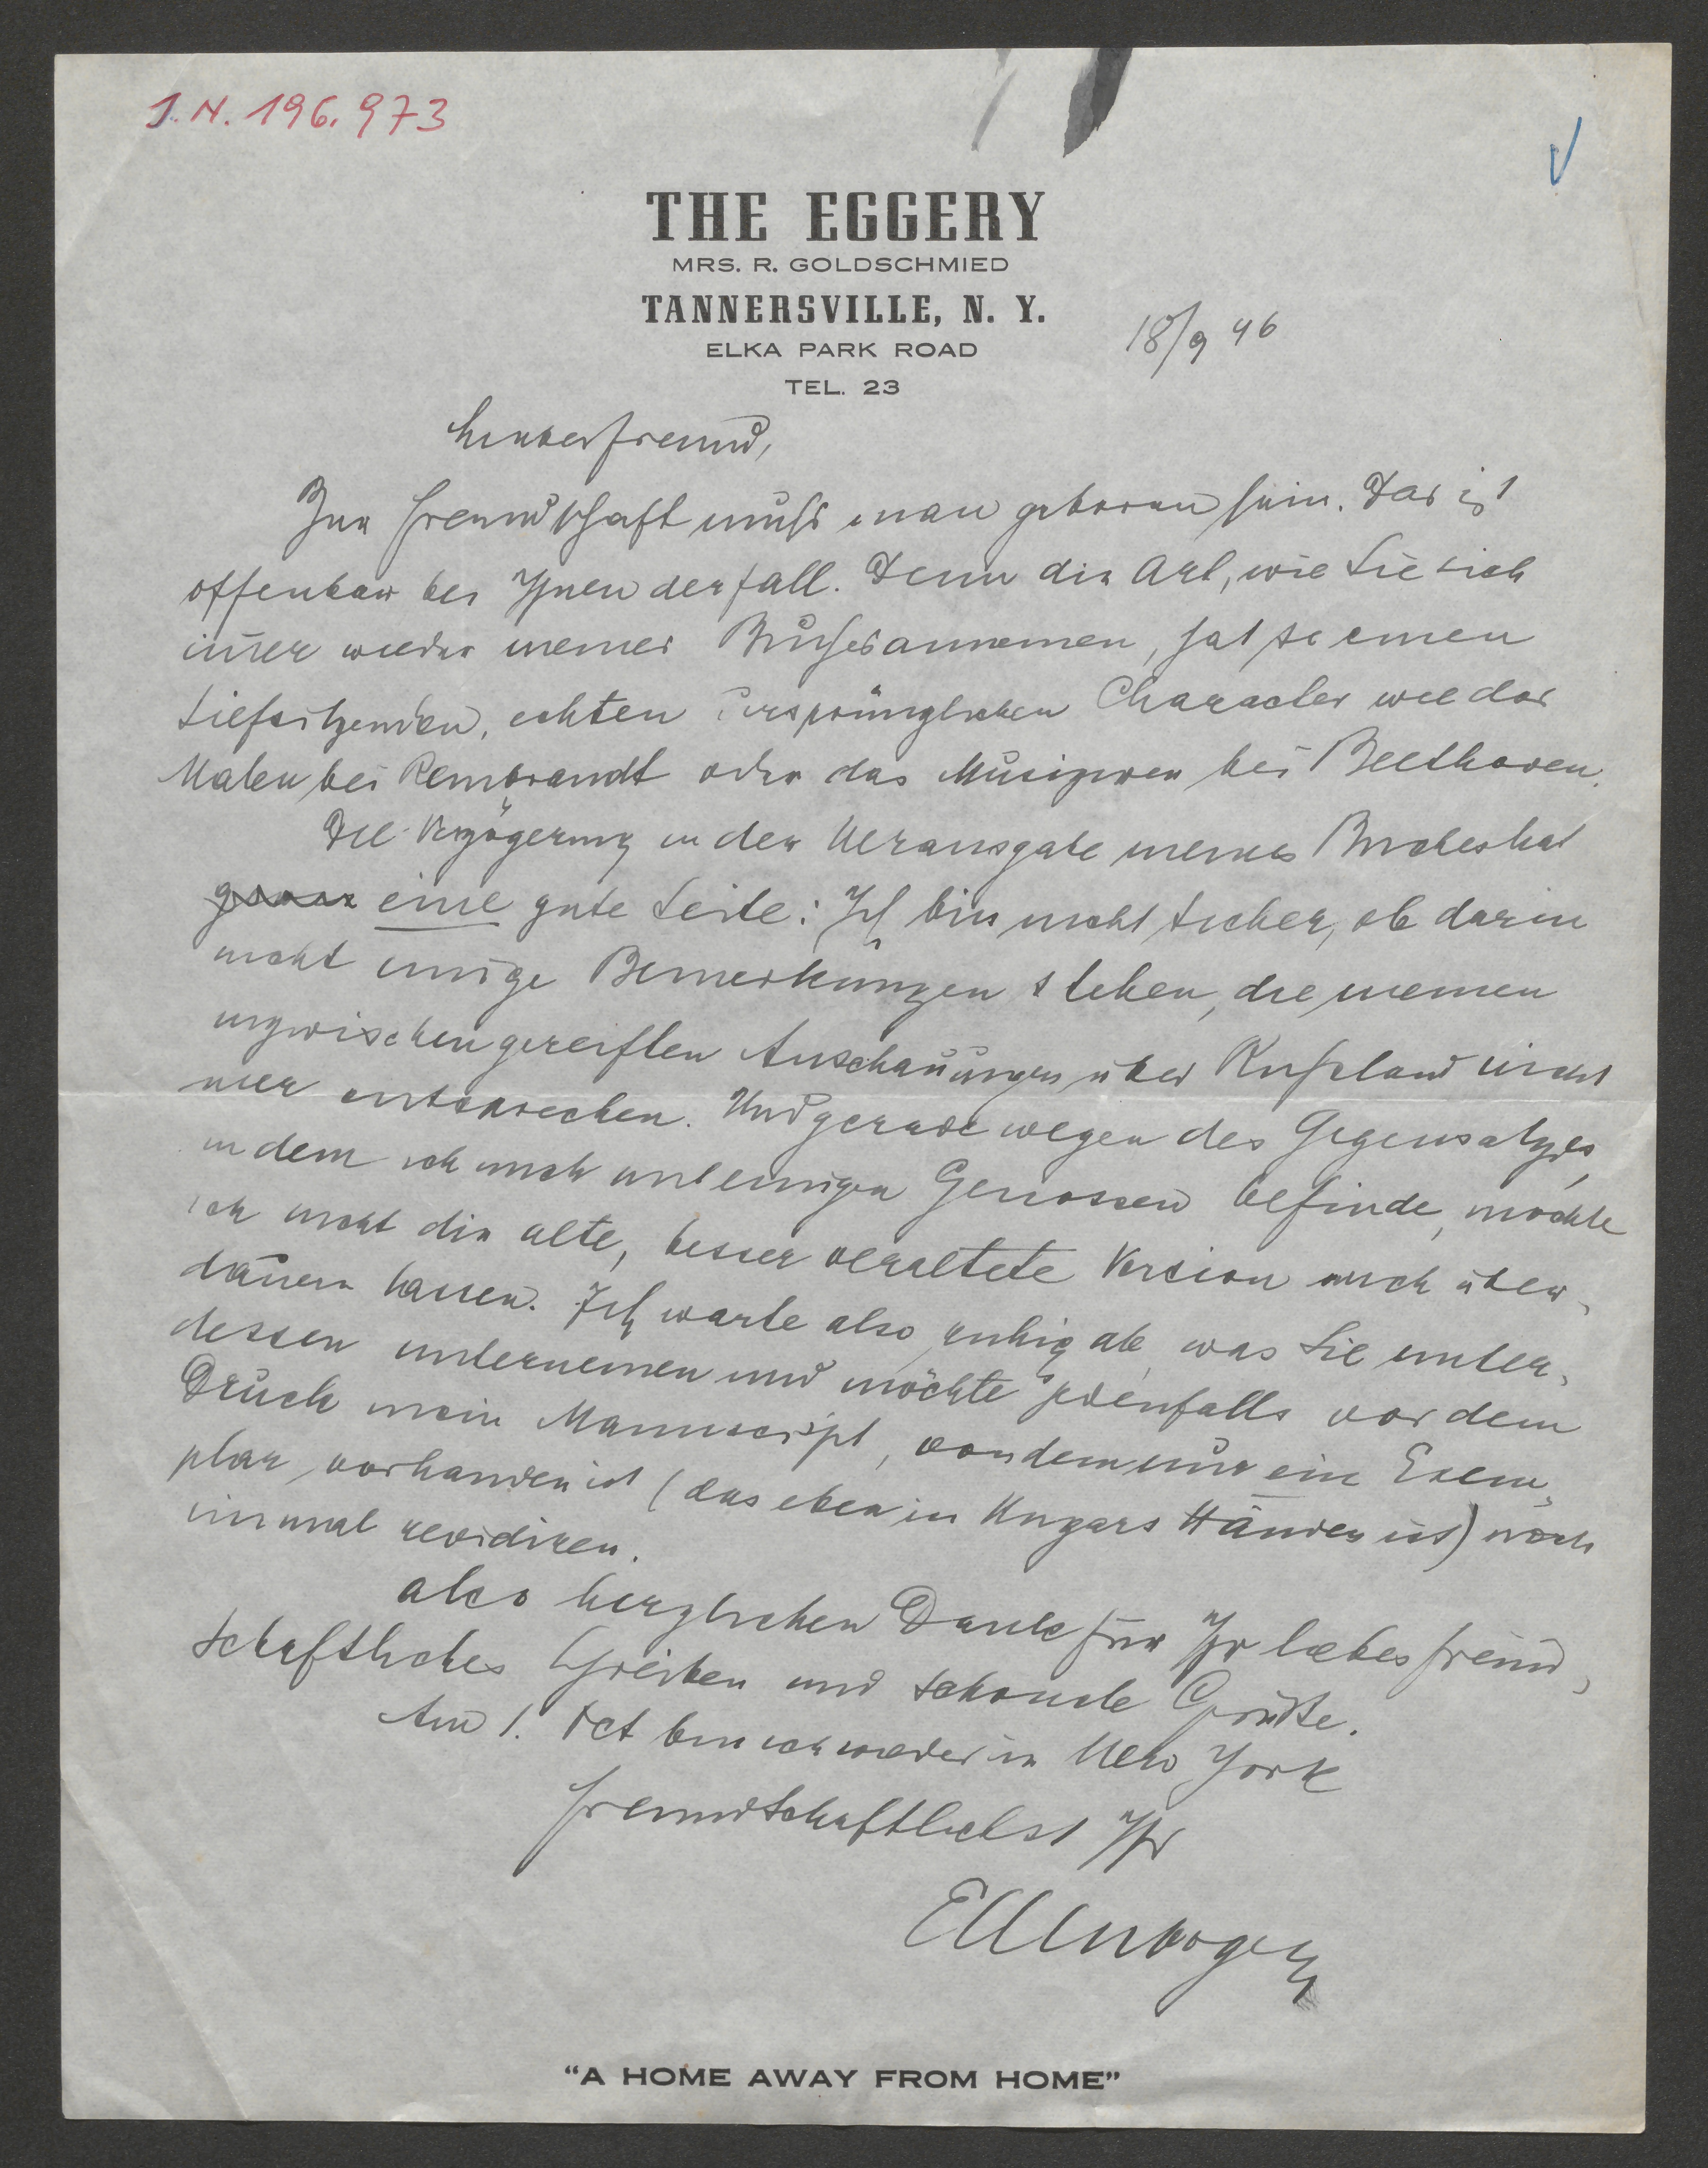 J.N. 196.973
THE EGGERY
MRS. R. GOLDSCHMIED
TANNERSVILLE, N. Y.
ELKA PARK ROAD
TEL. 23
18/9 46
Lieber Freund,
Zur Freundschaft muß man geboren sein. Das ist
offenbar bei Ihnen der Fall. Denn die Art, wie Sie sich
im̄er wieder meines Buches annemen, hat so einen
tiefsitzenden, echten ursprünglichen Character wie das
Malen bei Rembrandt oder das Musizieren bei Beethoven.
Die Verzögerung in der Herausgabe meines Buches hat
eine gute Seite: Ich bin nicht sicher, ob darin
nicht einige Bemerkungen stehen, die meinen
inzwischen gereiften Anschauungen über Rußland nicht
mer entsprechen. Und gerade wegen des Gegensatzes,
in dem ich mich mit einigen Genossen befinde, möchte
ich nicht die alte, besser veraltete Version mich über-
dauern lassen. Ich warte also ruhig ab, was Sie unter-
dessen unternemen und möchte jedenfalls vor dem
Druck mein Manuscript, von dem nur ein Exem-
plar vorhanden ist (das eben in Ungars Händen ist) noch
einmal revidiren.
Also herzlichen Dank für Ihr liebes freund-
schaftliches Schreiben und schönste Grüße.
Am 1. Oct bin ich wieder in New York
Freundschaftlichst Ihr
Ellenbogen
"A HOME AWAY FROM HOME"